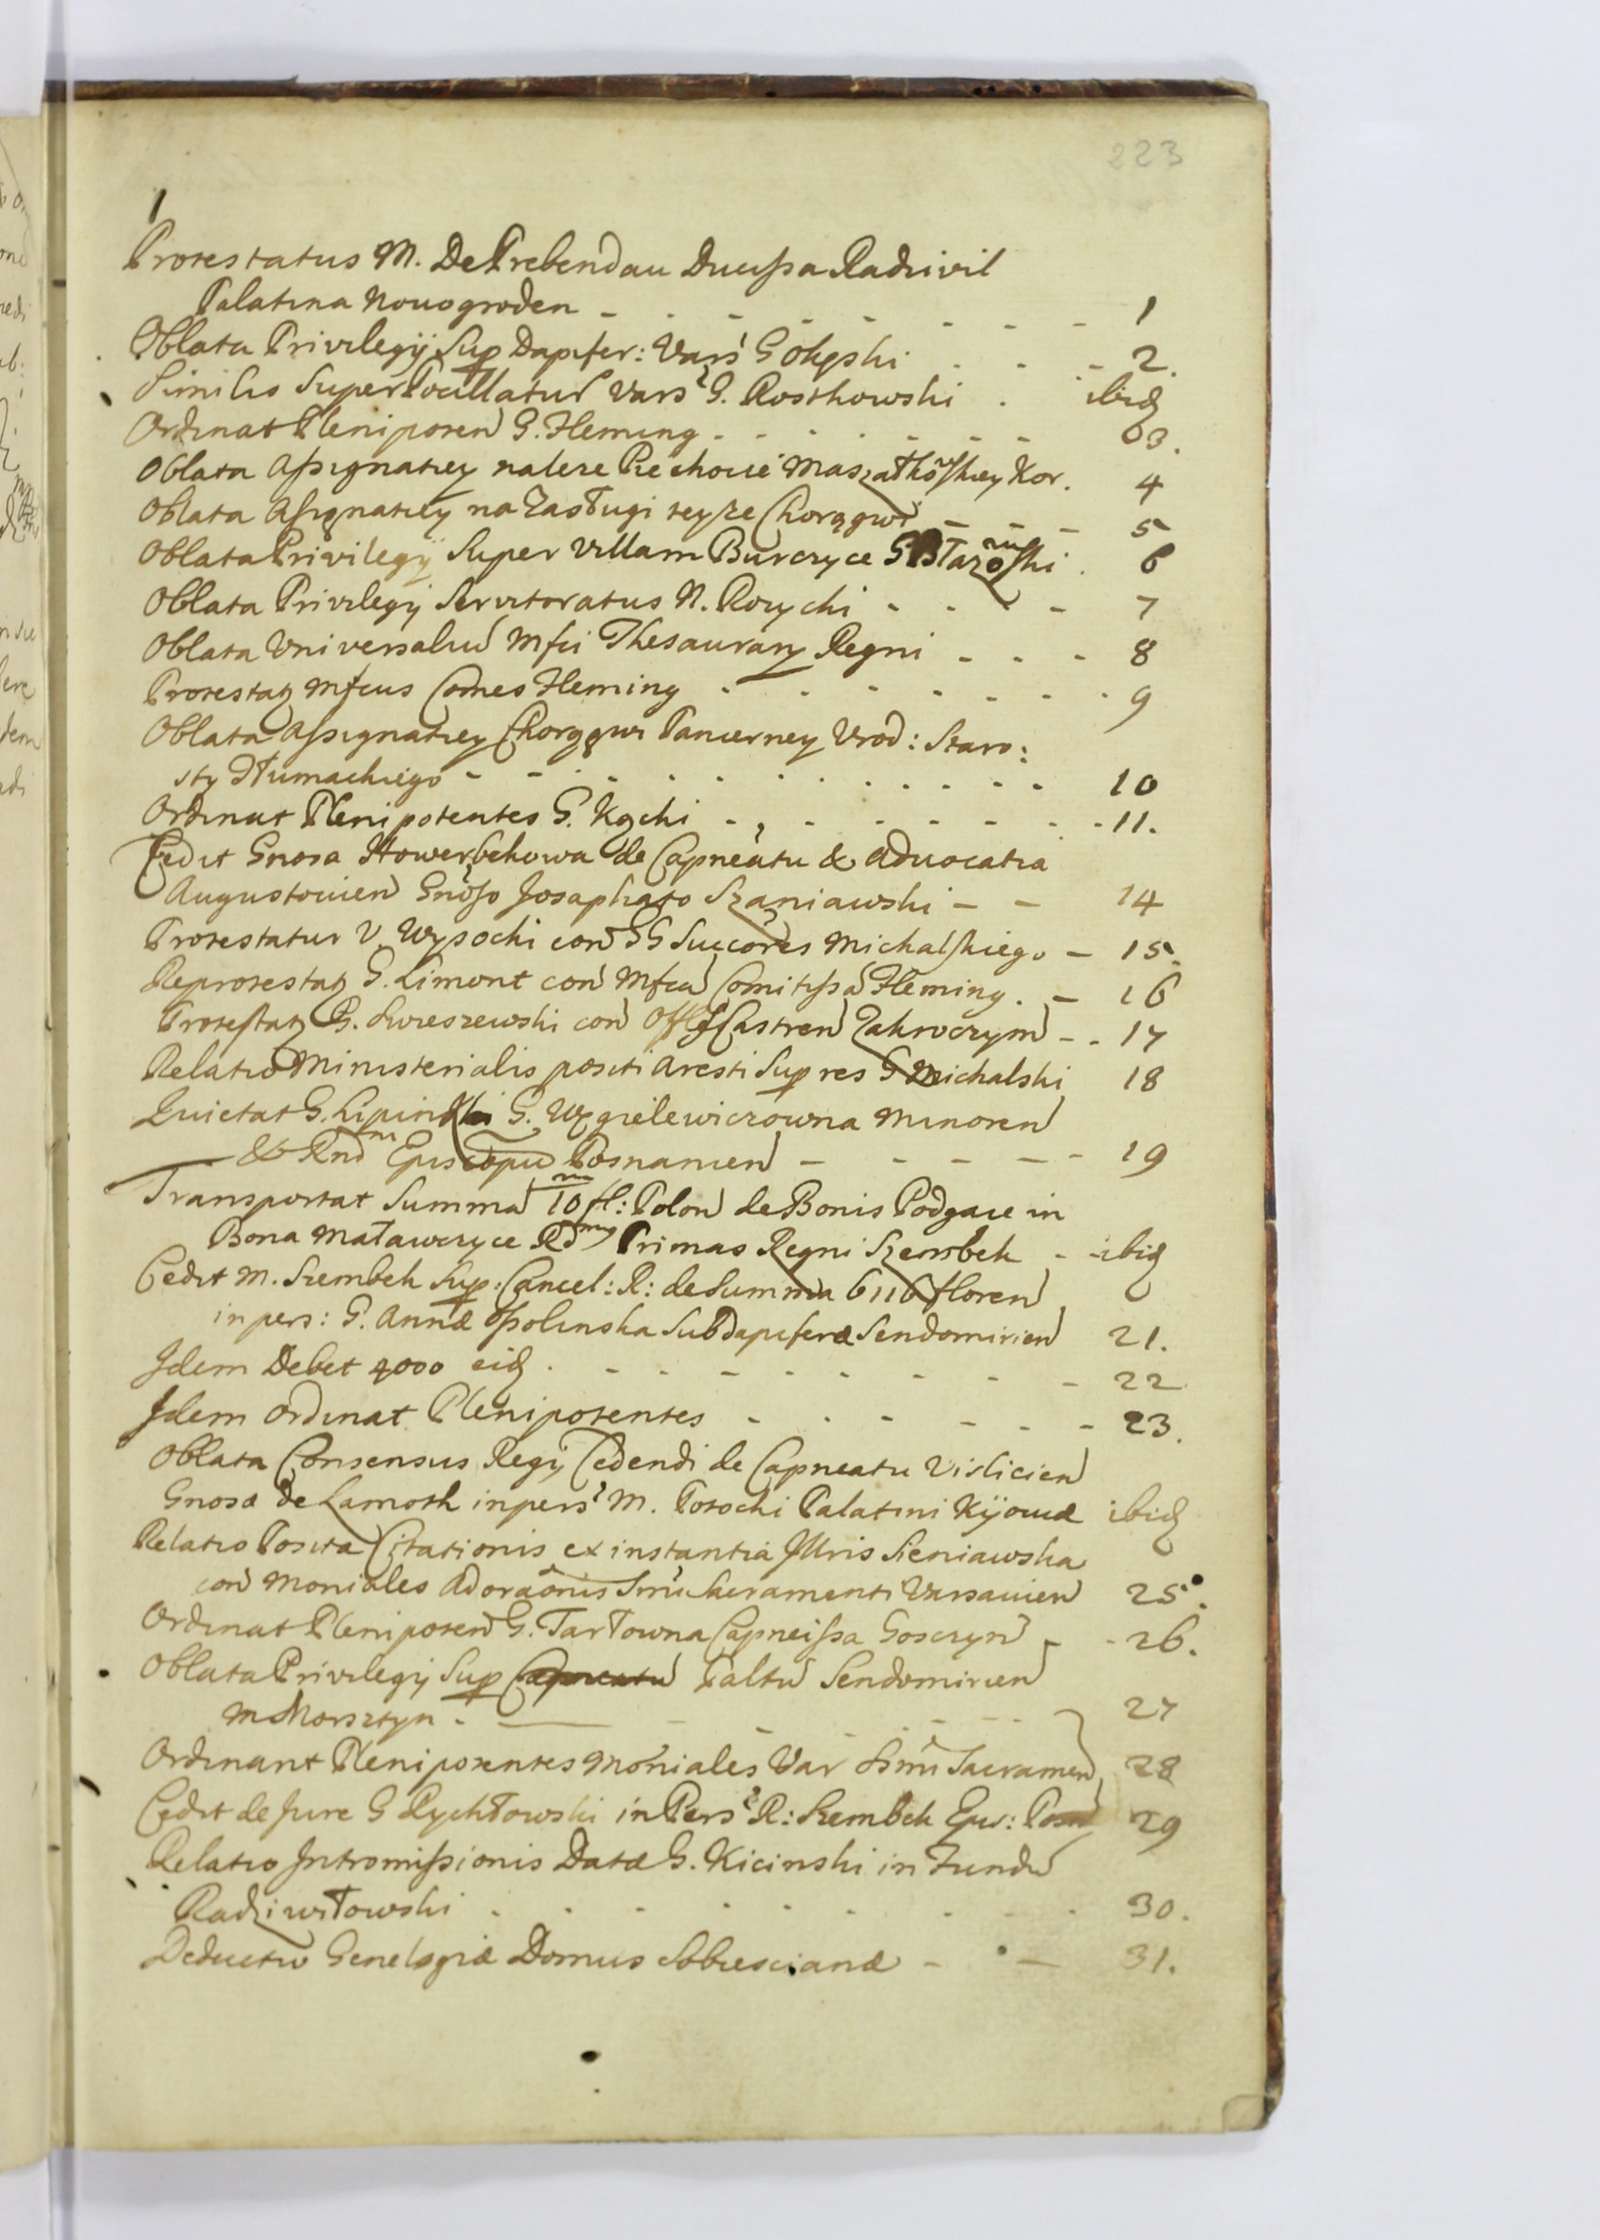 223
1
Protestatus M. De Prebendau Ducissa Radzivil
Palatina Novogroden - - - - - - - - 1
Oblata Privilegij Sup Dapifer: Vars G Okęski - - - 2.
Similis Super Pocillatur Vars G. Rostkowski . ibid
Ordinat Plenipoten G. Fleming - - - - - - 3.
Oblata Assignatiey na leze Piechocie Marszałkowskiey Kor. 4
Oblata Assignatiey na Zasługi teyze Chorągwi - - - 5
Oblata Privilegij Super Villam Burczyce G Błazowski . 6
Oblata Privilegij Servitoratus N. Rozycki - - - - 7
Oblata Universaliu Mfci Thesaurarij Regni - - - 8
Protestat Mfcus Comes Fleming - - - - - - - 9
Oblata Assignatiey Chorągwi Pancerney Urod: Staro:
sty Tłumackiego - - - - - - - - - - 10
Ordinat Plenipotentes G. Kącki - - - - - - - 11.
Cedit Gnosa Howerbekowa de Capneatu & Advocatia
Augustovien Gnoso Josaphato Szaniawski - - 14
Protestatur V. Wysocki con GG Succores Michalskiego - 15.
Reprotestat G. Limont con Mfca Comitissa Fleming. - 16
Protestat G. Swieszewski con Offici Castren Zakroczym - - 17
Relatio Ministerialis positi Aresti Sup res G Michalski 18
Quietat G. Lipinski G. Węgielewiczowna Minoren
& Rnd m Episcopu Posnanien - - - - - 19
Transportat Summa 10 m fl: Polon de Bonis Podgaie in
Bona Matawczyce Rdmus Primas Regni Szembek - - ibid
Cedit M. Szembek Sup: Cancel: R: de Summa 6116 floren
in pers: G. Annæ Ossolinska Subdapiferæ Sendomirien 21.
Idem Debet 4000 eid . - - - - - - - - 22
Idem Ordinat Plenipotentes - - - - - - 23.
Oblata Consensus Regij Cedendi de Capneatu Vislicien
Gnosæ De Lamoth in pers M. Potocki Palatini Kijoviæ ibid
Relatio Posita Citationis ex instantia Illris Sieniawska
con Moniales Adoraonis Smi Sacramenti Varsavien 25.
Ordinat Plenipoten G. Tarłowna Capneissa Goszczyn - - 26.
Oblata Privilegij Sup Capneatu Paltu Sendomirien
M Morsztyn - - - - - - 27
Ordinant Plenipotentes Moniales Var Ssmi Sacramen 28
Cedit de Jure G Rychłowski in Pers R: Szembek Epis: Posn 29
Relatio Intromissionis Datæ G. Kicinski in Fundu
Radziwiłowski - - - - - - - - 30.
Deductio Genelogiæ Domus Sobiescianæ - - - 31.